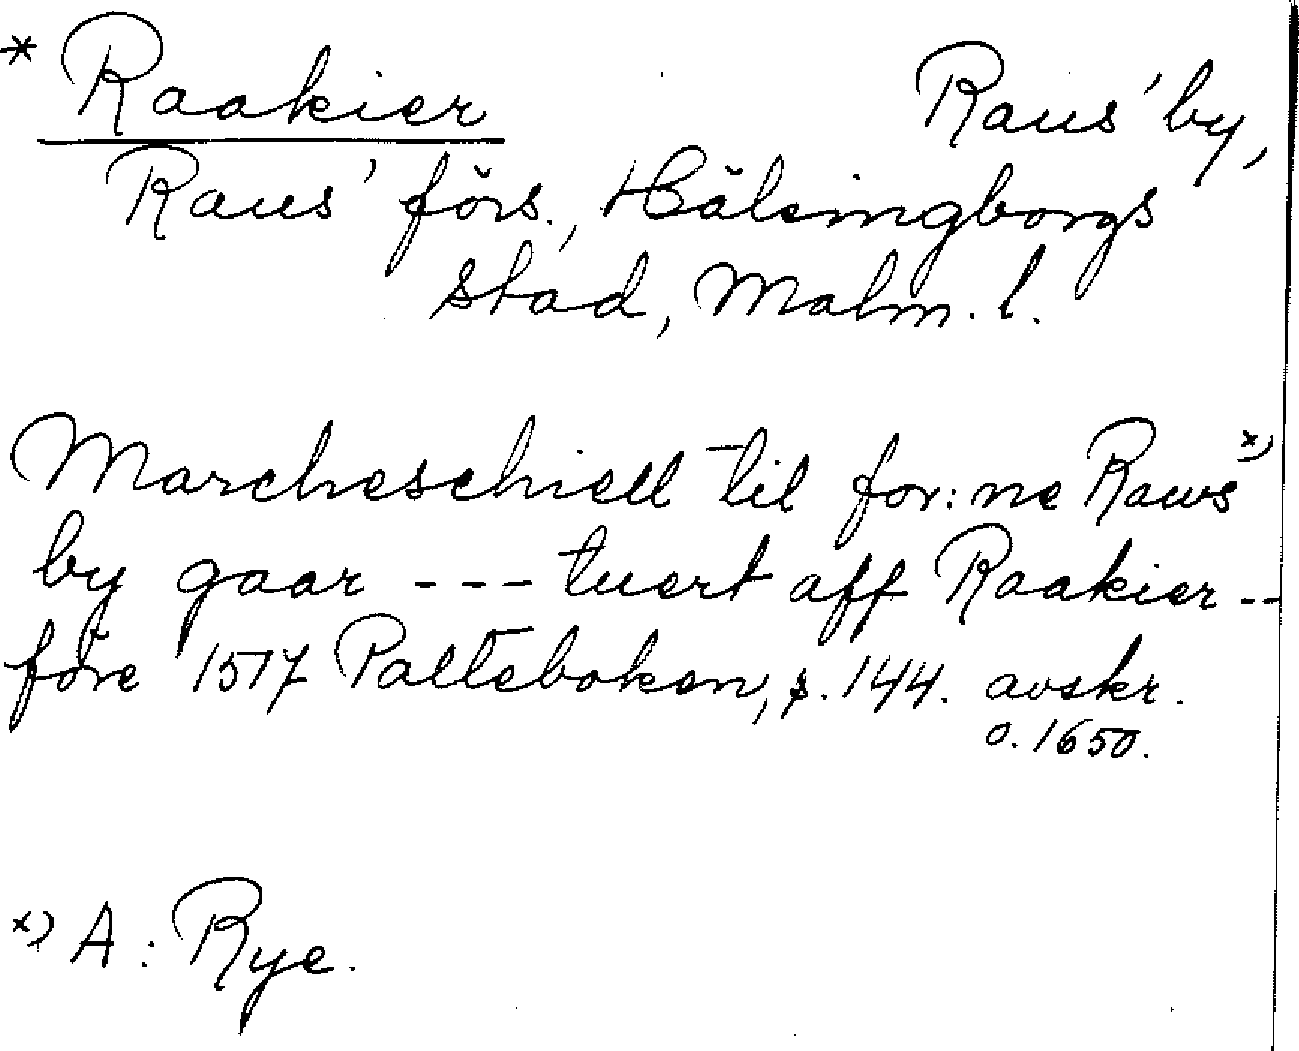 * Raakier Raus' by,
Raus' förs., Hälsingborgs
stad, Malm. l.
Marcheschiell til for:ne Raws x)
by gaar --- tuert aff Raakier --
före 1517 Palteboken, s. 144. avskr.
o. 1650.
x) A: Rye.